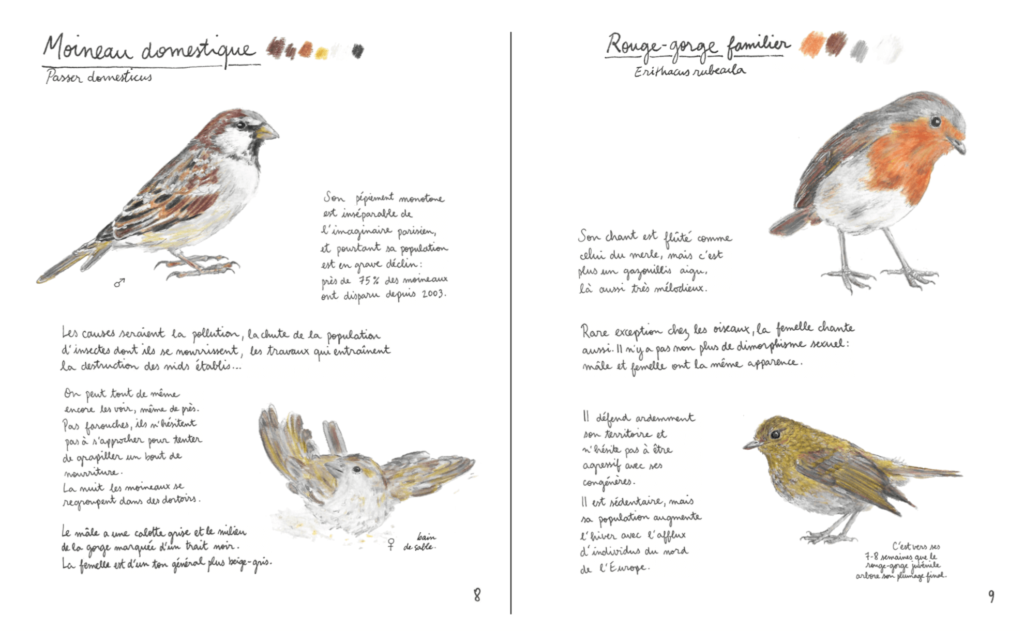 Moineau domestique
Passer domesticus
Son pépiement monotone
est inséparable de
l'imaginaire parisien,
et pourtant sa population
est en grave déclin :
près de 75% des moineaux
ont disparu depuis 2003.
Les causes seraient la pollution, la chute de la population
d'insectes dont ils se nourrissent, les travaux qui entraînent
la destruction des nids établis...
On peut tout de même
encore les voir, même de près.
Pas farouches, ils n'hésitent
pas à s'approcher pour tenter
de grapiller un bout de
nourriture.
La nuit les moineaux se
regroupent dans des dortoirs.
Le mâle a une calotte grise et le milieu
de la gorge marquée d'un trait noir.
La femelle est d'un ton général plus beige-gris.
♂
♀
bain
de sable.
8
Rouge-gorge familier
Erithacus rubecula
Son chant est flûté comme
celui du merle, mais c'est
plus un gazouillis aigu,
là aussi très mélodieux.
Rare exception chez les oiseaux, la femelle chante
aussi. Il n'y a pas non plus de dimorphisme sexuel :
mâle et femelle ont la même apparence.
Il défend ardemment
son territoire et
n'hésite pas à être
agressif avec ses
congénères.
Il est sédentaire, mais
sa population augmente
l'hiver avec l'afflux
d'individus du nord
de l'Europe.
C'est vers ses
7-8 semaines que le
rouge-gorge juvénile
arbore son plumage final.
9